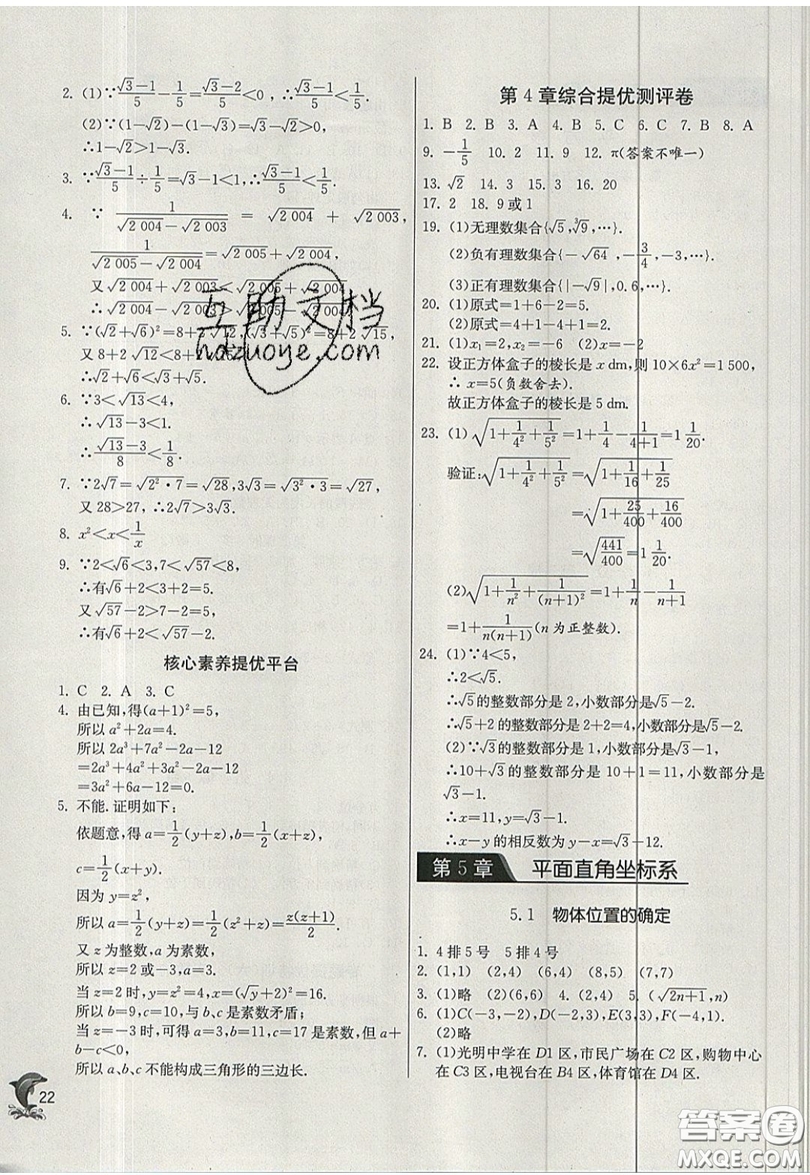 2. (1)∵(√3-1)/5-1/5=(√3-2)/5<0,∴(√3-1)/5<1/5.
(2)∵(1-√2)-(1-√3)=√3-√2>0,
∴1-√2>1-√3.
3. ∵(√3-1)/5÷1/5=√3-1<1,∴(√3-1)/5<1/5.
4. ∵ 1/(√2 004-√2 003) = √2 004 + √2 003,
1/(√2 005-√2 004)=√2 005+√2 004,
又√2 004+√2 003<√2 005+√2 004,
∴√2 004-√2 003>√2 005-√2 004.
5. ∵(√2+√6)²=8+2√12,(√3+√5)²=8+2√15,
又8+2√12<8+2√15,
∴√2+√6<√3+√5.
6. ∵3<√13<4,
∴√13-3<1.
∴(√13-3)/8<1/8.
7. ∵2√7=√(2²·7)=√28,3√3=√(3²·3)=√27,
又28>27,∴2√7>3√3.
8. x²<x<1/x
9. ∵2<√6<3,7<√57<8,
∴有√6+2<3+2=5.
又√57-2>7-2=5,
∴有√6+2<√57-2.
核心素养提优平台
1. C 2. A 3. C
4. 由已知,得(a+1)²=5,
所以a²+2a=4.
所以2a³+7a²-2a-12
=2a³+4a²+3a²-2a-12
=3a²+6a-12=0.
5. 不能.证明如下:
依题意,得a=1/2(y+z),b=1/2(x+z),
c=1/2(x+y).
因为y=z²,
所以a=1/2(y+z)=1/2(z²+z)=z(z+1)/2.
又z为整数,a为素数,
所以z=2或-3,a=3.
当z=2时,y=z²=4,x=(√y+z)²=16.
所以b=9,c=10,与b、c是素数矛盾;
当z=-3时,可得a=3,b=11,c=17是素数,但a+
所以a、b、c不能构成三角形的三边长.
22
第4章综合提优测评卷
1. B 2. B 3. A 4. B 5. C 6. C 7. B 8. A
9. -1/5 10. 2 11. 9 12. π(答案不唯一)
13. √2 14. 3 15. 3 16. 20
17. 2 18. 9或1
19. (1)无理数集合{√5,∛9,…}.
(2)负有理数集合{-√64,-3/4,-3,…}.
(3)正有理数集合{|-√9|,0.6,…}.
20. (1)原式=1+6-2=5.
(2)原式=4+1-4+1=2.
21. (1)x₁=2,x₂=-6 (2)x=-2
22. 设正方体盒子的棱长是x dm,则10×6x²=1 500,
∴ x=5(负数舍去).
故正方体盒子的棱长是5 dm.
23. (1)√(1+1/4²+1/5²)=1+1/4-1/(4+1)=1 1/20.
验证:√(1+1/4²+1/5²)=√(1+1/16+1/25)
=√(1+25/400+16/400)
=√(441/400)=1 1/20.
(2)√(1+1/n²+1/(n+1)²)=1+1/n-1/(n+1)
=1+1/(n(n+1))(n为正整数).
24. (1)∵4<5,
∴2<√5.
∴√5的整数部分是2,小数部分是√5-2.
∴√5+2的整数部分是2+2=4,小数部分是√5-2.
(2)∵√3的整数部分是1,小数部分是√3-1,
∴10+√3的整数部分是10+1=11,小数部分是
√3-1.
∴x=11,y=√3-1.
∴x-y的相反数为y-x=√3-12.
第5章 平面直角坐标系
5.1 物体位置的确定
1. 4排5号 5排4号
2. (1,1) (2,4) (6,4) (8,5) (7,7)
3. (1)略 (2)(6,6) 4. (2,4) 5. (√(2n+1),n)
6. (1)C(-3,-2),D(-2,3),E(3,3),F(4,-1).
(2)略
7. (1)光明中学在D1区,市民广场在C2区,购物中心
在C3区,电视台在B4区,体育馆在D4区.
互助文档
hdzuoye.com
答案圈
MXQE.COM